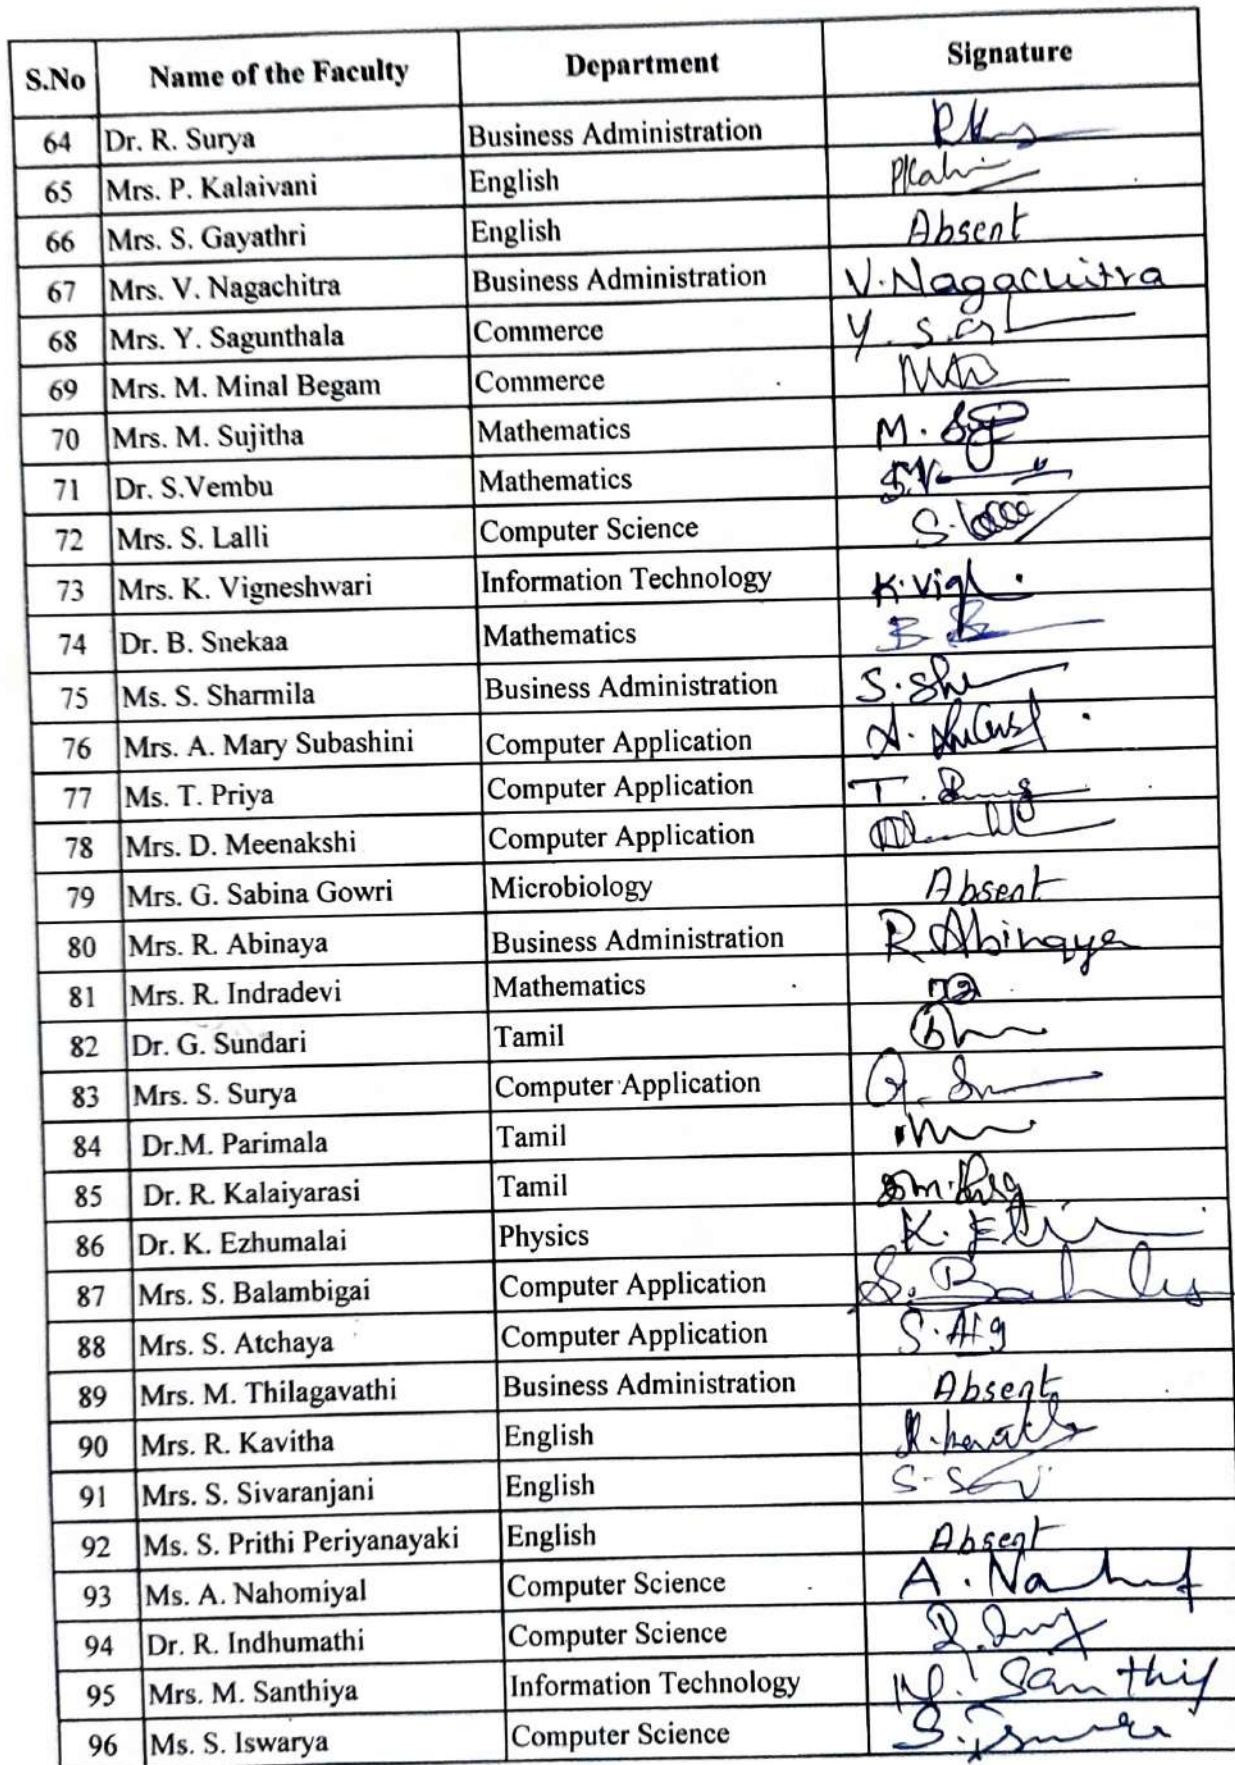 S.No Name of the Faculty Department Signature
64 Dr. R. Surya Business Administration
65 Mrs. P. Kalaivani English
66 Mrs. S. Gayathri English Absent
67 Mrs. V. Nagachitra Business Administration V. Nagachitra
68 Mrs. Y. Sagunthala Commerce
69 Mrs. M. Minal Begam Commerce
70 Mrs. M. Sujitha Mathematics
71 Dr. S.Vembu Mathematics
72 Mrs. S. Lalli Computer Science
73 Mrs. K. Vigneshwari Information Technology
74 Dr. B. Snekaa Mathematics
75 Ms. S. Sharmila Business Administration
76 Mrs. A. Mary Subashini Computer Application
77 Ms. T. Priya Computer Application
78 Mrs. D. Meenakshi Computer Application
79 Mrs. G. Sabina Gowri Microbiology Absent
80 Mrs. R. Abinaya Business Administration R Abinaya
81 Mrs. R. Indradevi Mathematics
82 Dr. G. Sundari Tamil
83 Mrs. S. Surya Computer Application
84 Dr.M. Parimala Tamil
85 Dr. R. Kalaiyarasi Tamil
86 Dr. K. Ezhumalai Physics
87 Mrs. S. Balambigai Computer Application
88 Mrs. S. Atchaya Computer Application
89 Mrs. M. Thilagavathi Business Administration Absent
90 Mrs. R. Kavitha English
91 Mrs. S. Sivaranjani English
92 Ms. S. Prithi Periyanayaki English Absent
93 Ms. A. Nahomiyal Computer Science
94 Dr. R. Indhumathi Computer Science
95 Mrs. M. Santhiya Information Technology
96 Ms. S. Iswarya Computer Science